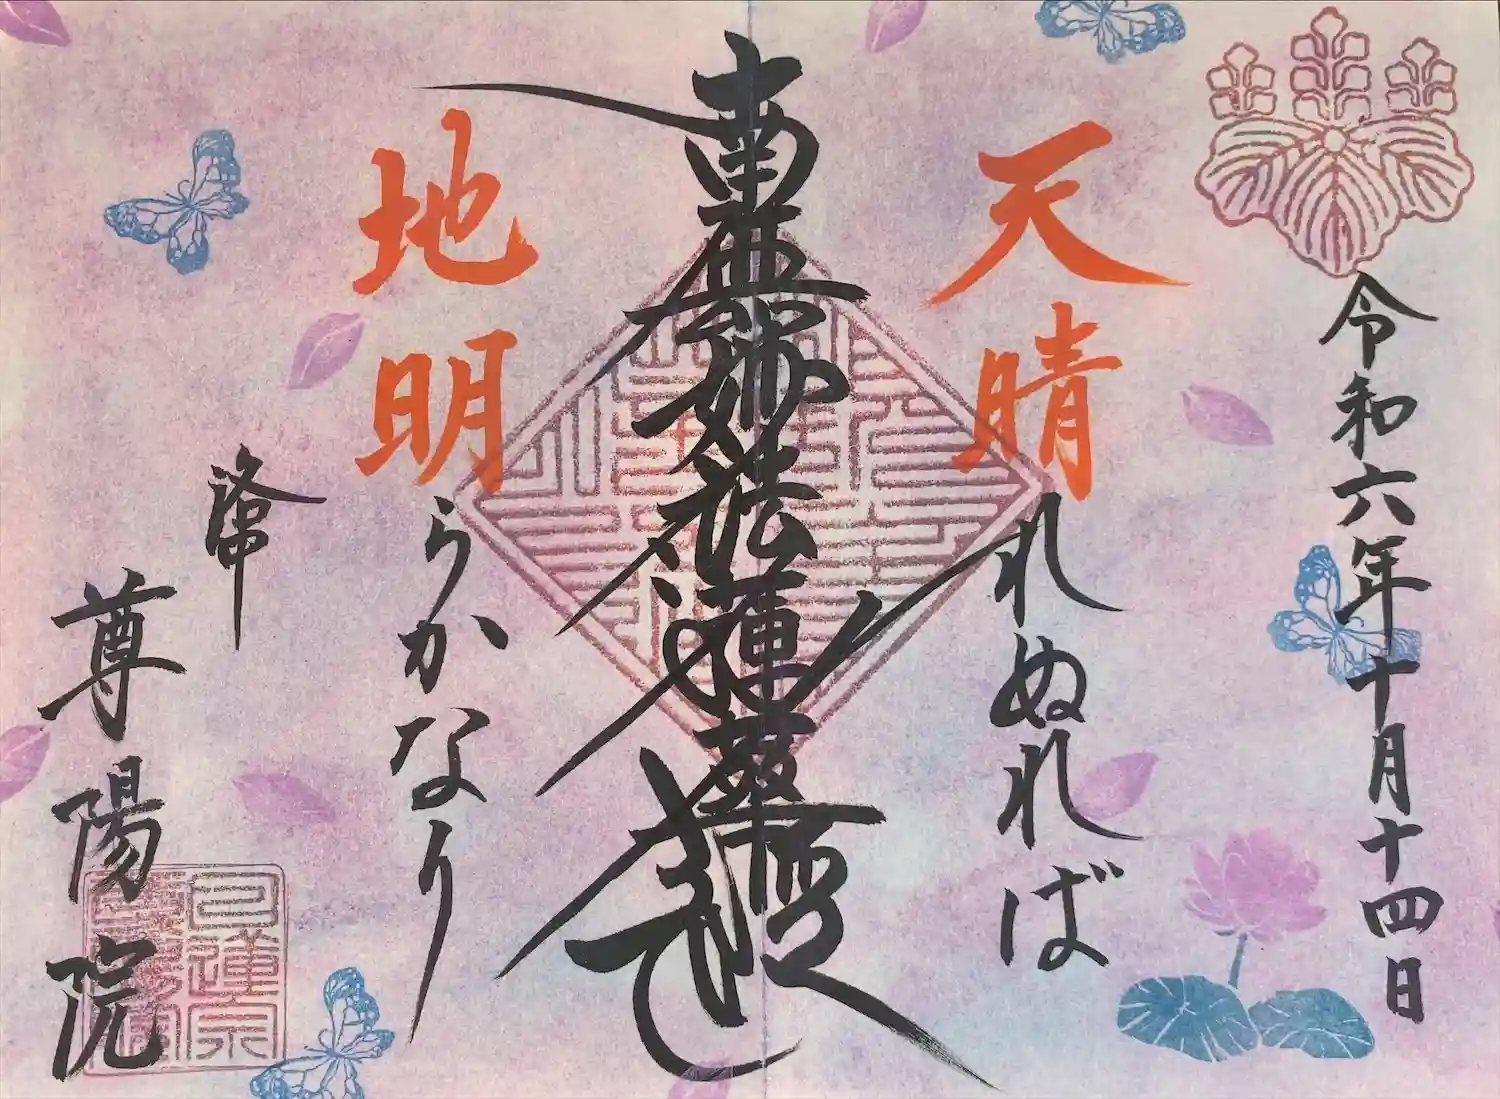 令和六年十月十四日
天晴れぬれば
南無妙法蓮華経
地明らかなり
尊陽院
日蓮宗